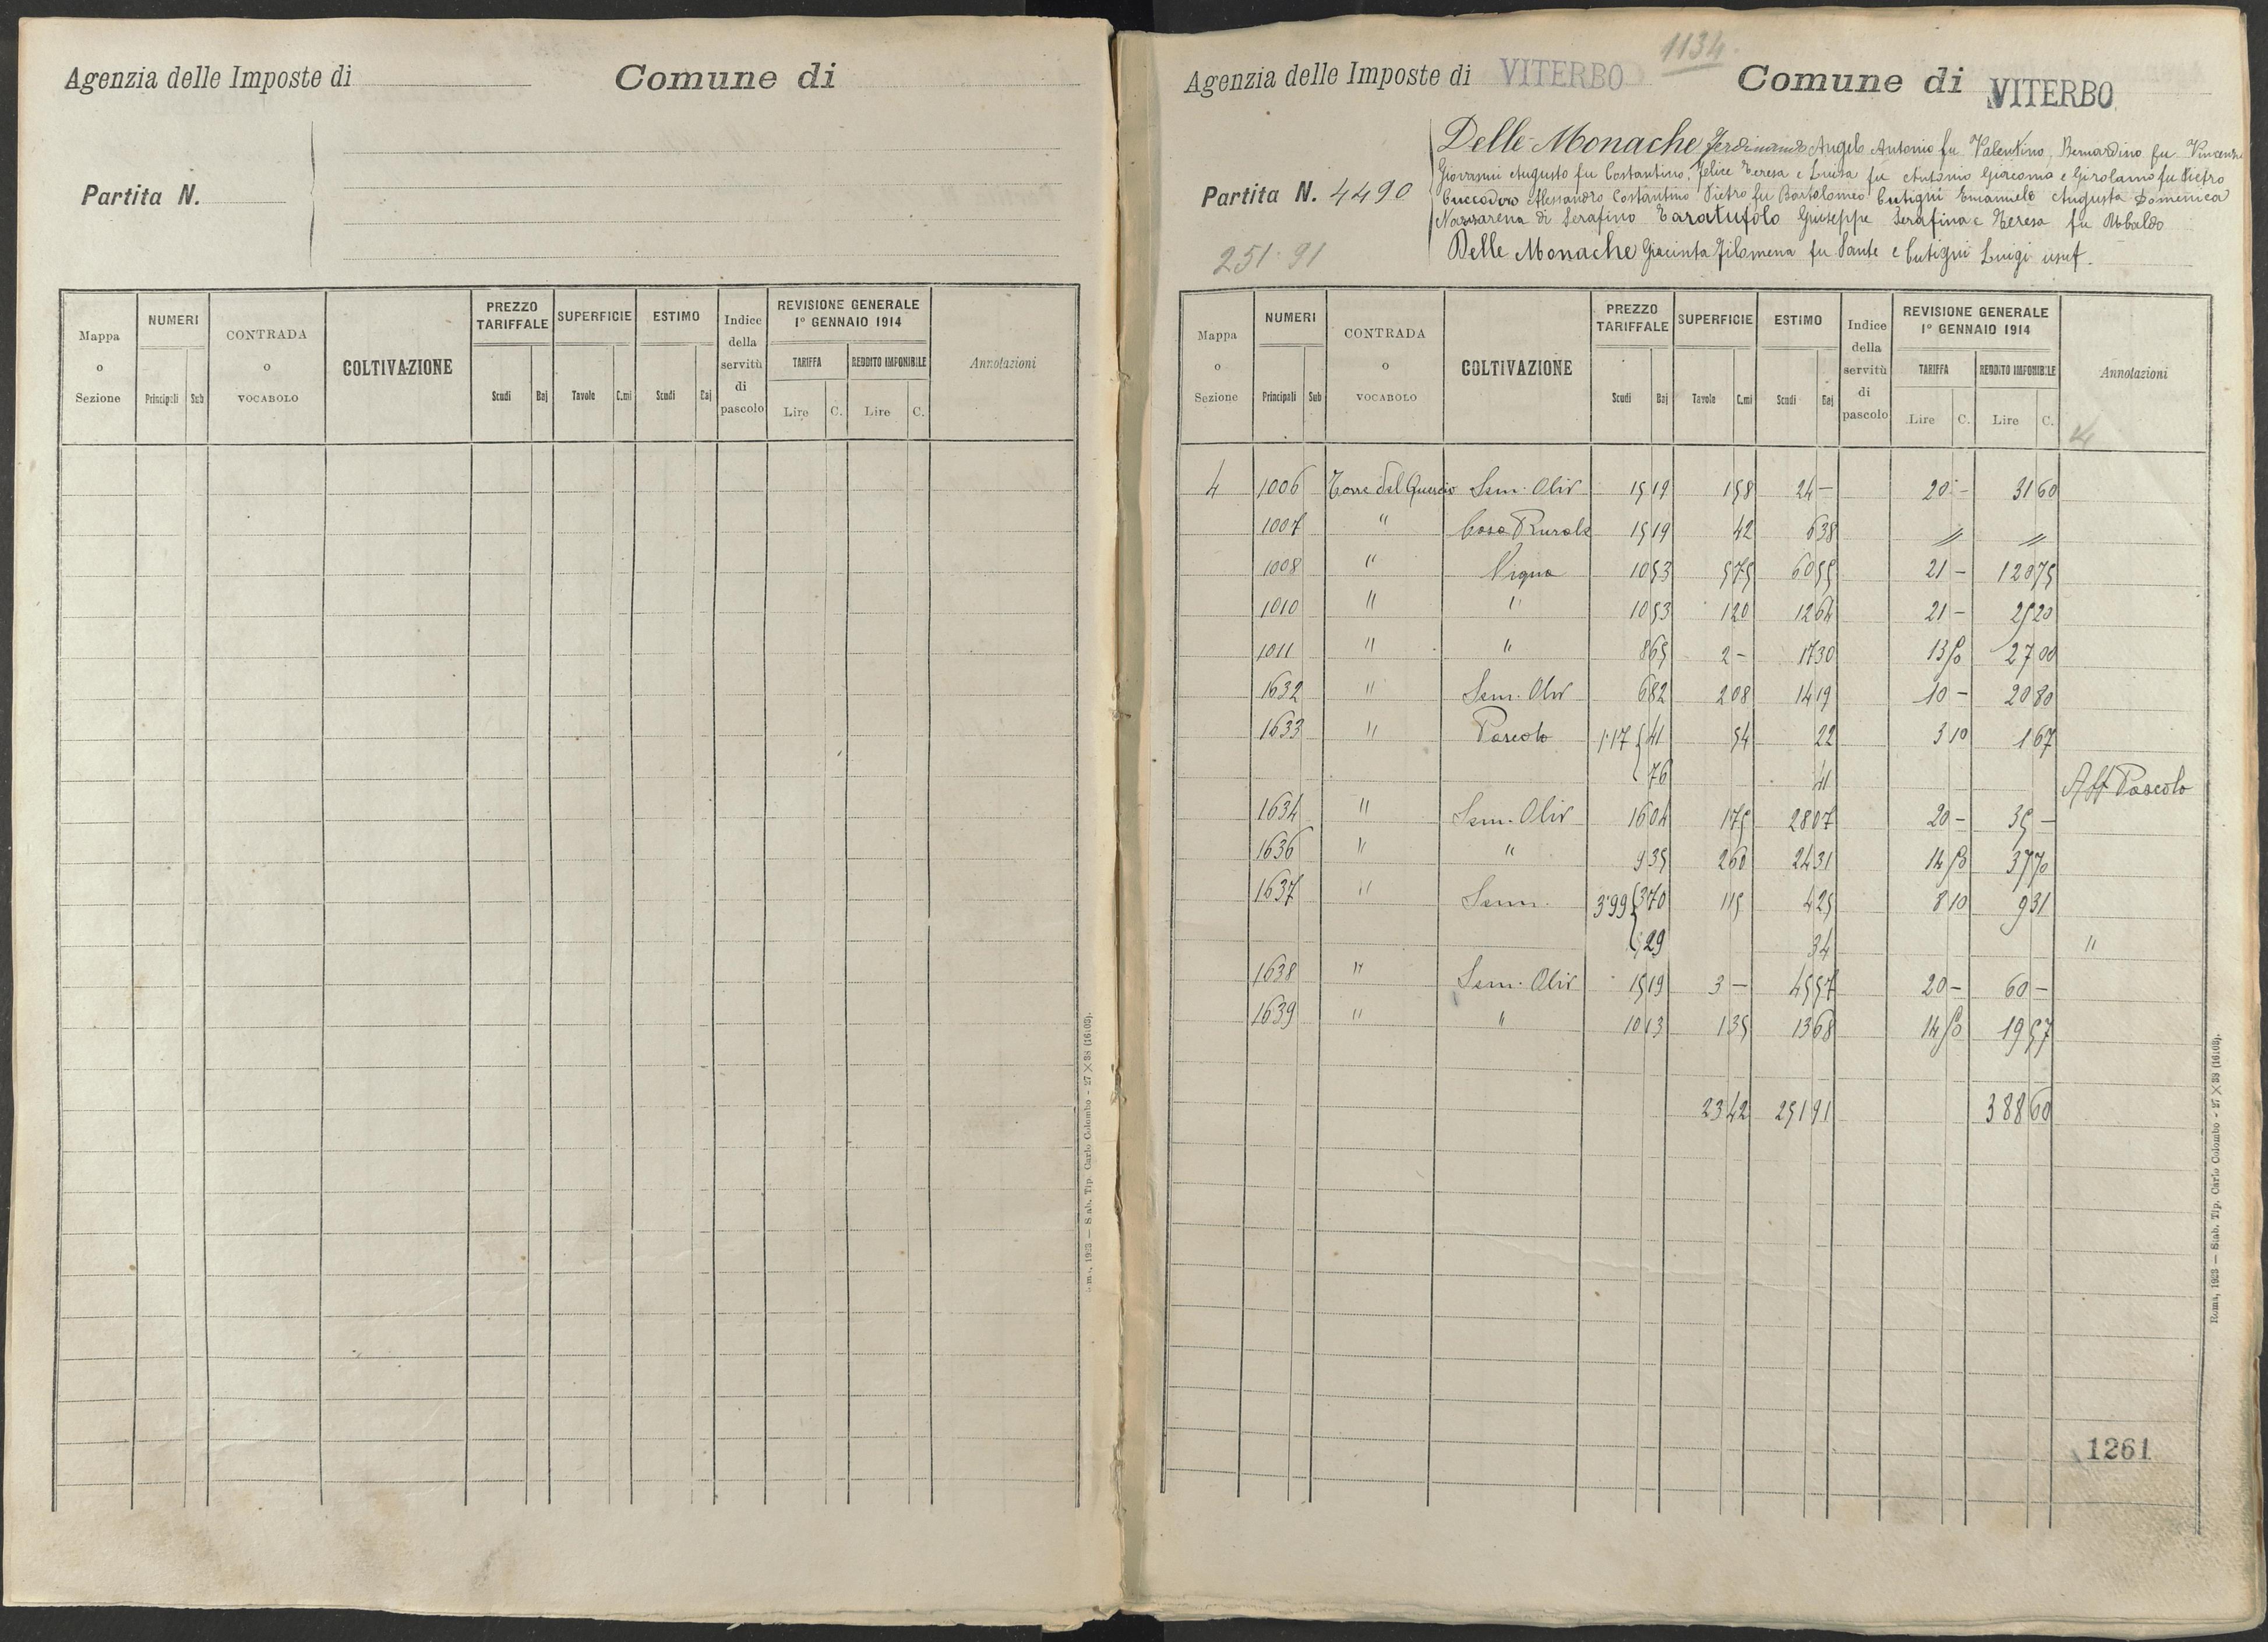 Agenzia delle Imposte di
Comune di
Partita N.
Mappa o Sezione
NUMERI
Principali Sub
CONTRADA o VOCABOLO
COLTIVAZIONE
PREZZO TARIFFALE
Scudi Baj
SUPERFICIE
Tavole C.mi
ESTIMO
Scudi Baj
Indice della servitù di pascolo
REVISIONE GENERALE
1° GENNAIO 1914
TARIFFA
Lire C.
REDDITO IMPONIBILE
Lire C.
Annotazioni
1134.
Agenzia delle Imposte di VITERBO
Comune di VITERBO
Partita N. 4490
251.91
Delle Monache Ferdinando Angelo Antonio fu Valentino, Bernardino fu Vincenzo
Giovanni Augusto fu Costantino, Felice Teresa e Luisa fu Antonio Giacomo e Girolamo fu Pietro
Cuccodoro Alessandro Costantino Pietro fu Bartolomeo Cutigni Emanuele Augusta Domenica
Nazzarena di Serafino Taratufolo Giuseppe Serafina e Teresa fu Ubaldo
Delle Monache Giacinta Filomena fu Sante e Cutigni Luigi usuf.
Mappa o Sezione
NUMERI
Principali Sub
CONTRADA o VOCABOLO
COLTIVAZIONE
PREZZO TARIFFALE
Scudi Baj
SUPERFICIE
Tavole C.mi
ESTIMO
Scudi Baj
Indice della servitù di pascolo
REVISIONE GENERALE
1° GENNAIO 1914
TARIFFA
Lire C.
REDDITO IMPONIBILE
Lire C.
Annotazioni
4 1006 Torre del Quercio Sem. Oliv 15 19 1 58 24 — 20 - 31 60
1007 " Casa Rurale 15 19 42 6 38 " "
1008 " Vigna 10 53 5 75 60 55 21 - 120 75
1010 " " 10 53 1 20 12 64 21 - 25 20
1011 " " 8 65 2 - 17 30 13 50 27 00
1632 " Sem. Oliv 6 82 2 08 14 19 10 - 20 80
1633 " Pascolo 1.17 { 41 54 22 3 10 1 67
76 41 Aff Pascolo
1634 " Sem. Oliv 16 04 1 75 28 07 20 - 35 -
1636 " " 9 35 2 60 24 31 14 50 37 70
1637 " Sem. 3.99 { 3 70 1 15 4 25 8 10 9 31
29 34 "
1638 " Sem. Oliv 15 19 3 - 45 57 20 - 60 -
1639 " " 10 13 1 35 13 68 14 50 19 57
23 42 251 91 388 60
1261
Roma, 1923 — Stab. Tip. Carlo Colombo - 27 × 38 (16103).